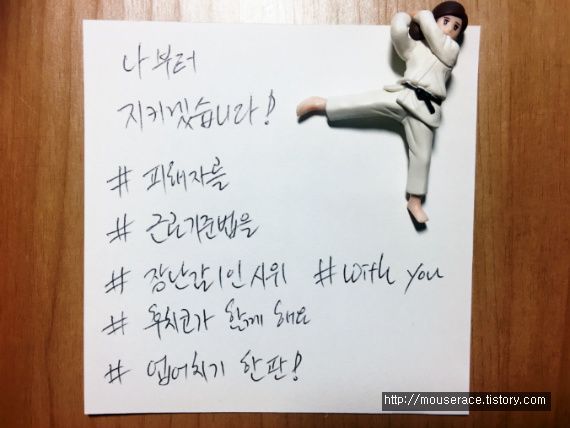 나부터
지키겠습니다!
# 피해자를
# 근로기준법을
# 장난감1인시위 #with you
# 후치코가 함께 해요
# 엎어치기 한판!
http://mouserace.tistory.com